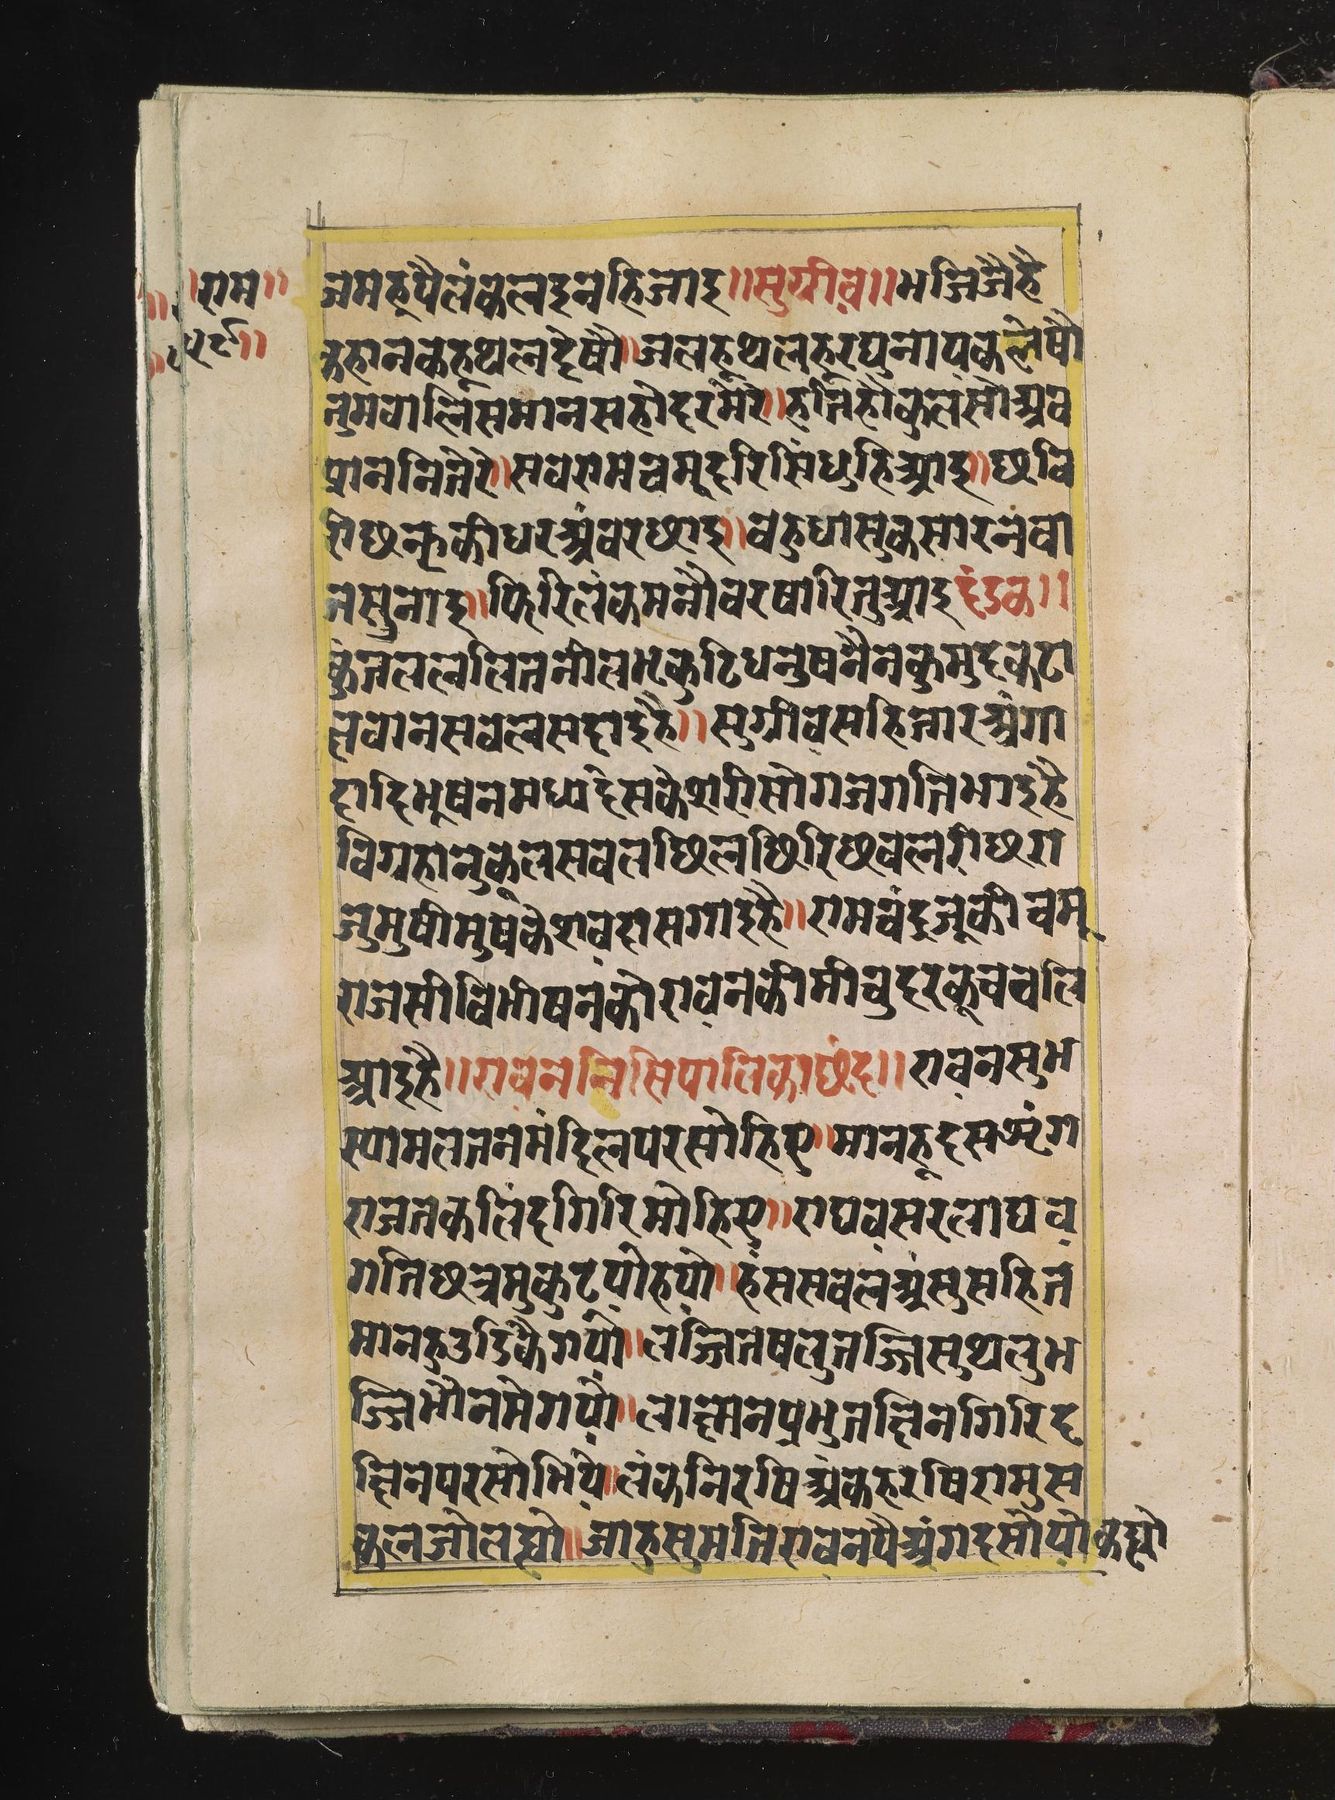 ॥राम॥
जमहूपैलंकलइनहिजाइ॥सुग्रीव॥भजिजैहै
कहानकहूथलदेषौ॥जलहूथलहूरघुनायकलेषौ
तुमवालिसमानसहोदरमेरे॥हतिहौकुलसोअव
प्राननितेरे॥सवरामचमूदरिसिंधुहिआइ॥छवि
रिछनकीधरअंवरछाइ॥वहुधासुकसारनवा
तसुनाइ॥फिरिलंकमनौवरषारितुआइदंडक॥
कुंतलललितनीलभृकुटिधनुषनैनकुमुदकटा
छवानसवलसदाइहै॥सुग्रीवसहिततारअंगा
दादिभूषनमध्यदेसकेशरीसोगजगतिभाइहै
विग्रहानुकूलसवलछिलछिरिछवलरीछग
जुमुषीमुषकेशवदासगाइहै॥रामचंदजूकीचमू
राजसीविभीषनकीरावनकीमीचुदरकूचचलि
आइहै॥रावननिसिपालिकाछंद॥रावनसुभ
स्यामलतनमंदिलपरसोहिए॥मानहूदसशृंग
राजतकलिंदगिरिमोहिए॥राघवसरलाघव
गतिछत्रमुकुटयोहयो॥हंससवलअंसुसहित
मानहुउडिकैगयो॥लज्जितषलुतज्जिसुथलुभ
ज्जिभौनमेगयो॥लाछमनप्रभुतछिनगिरिद
छिनपरसोभिये॥लंकनिरषिअंकहरषिरामुस
कलजोलह्यो॥जाहुसुमतिरावनपैअंगदसोयोकह्यो